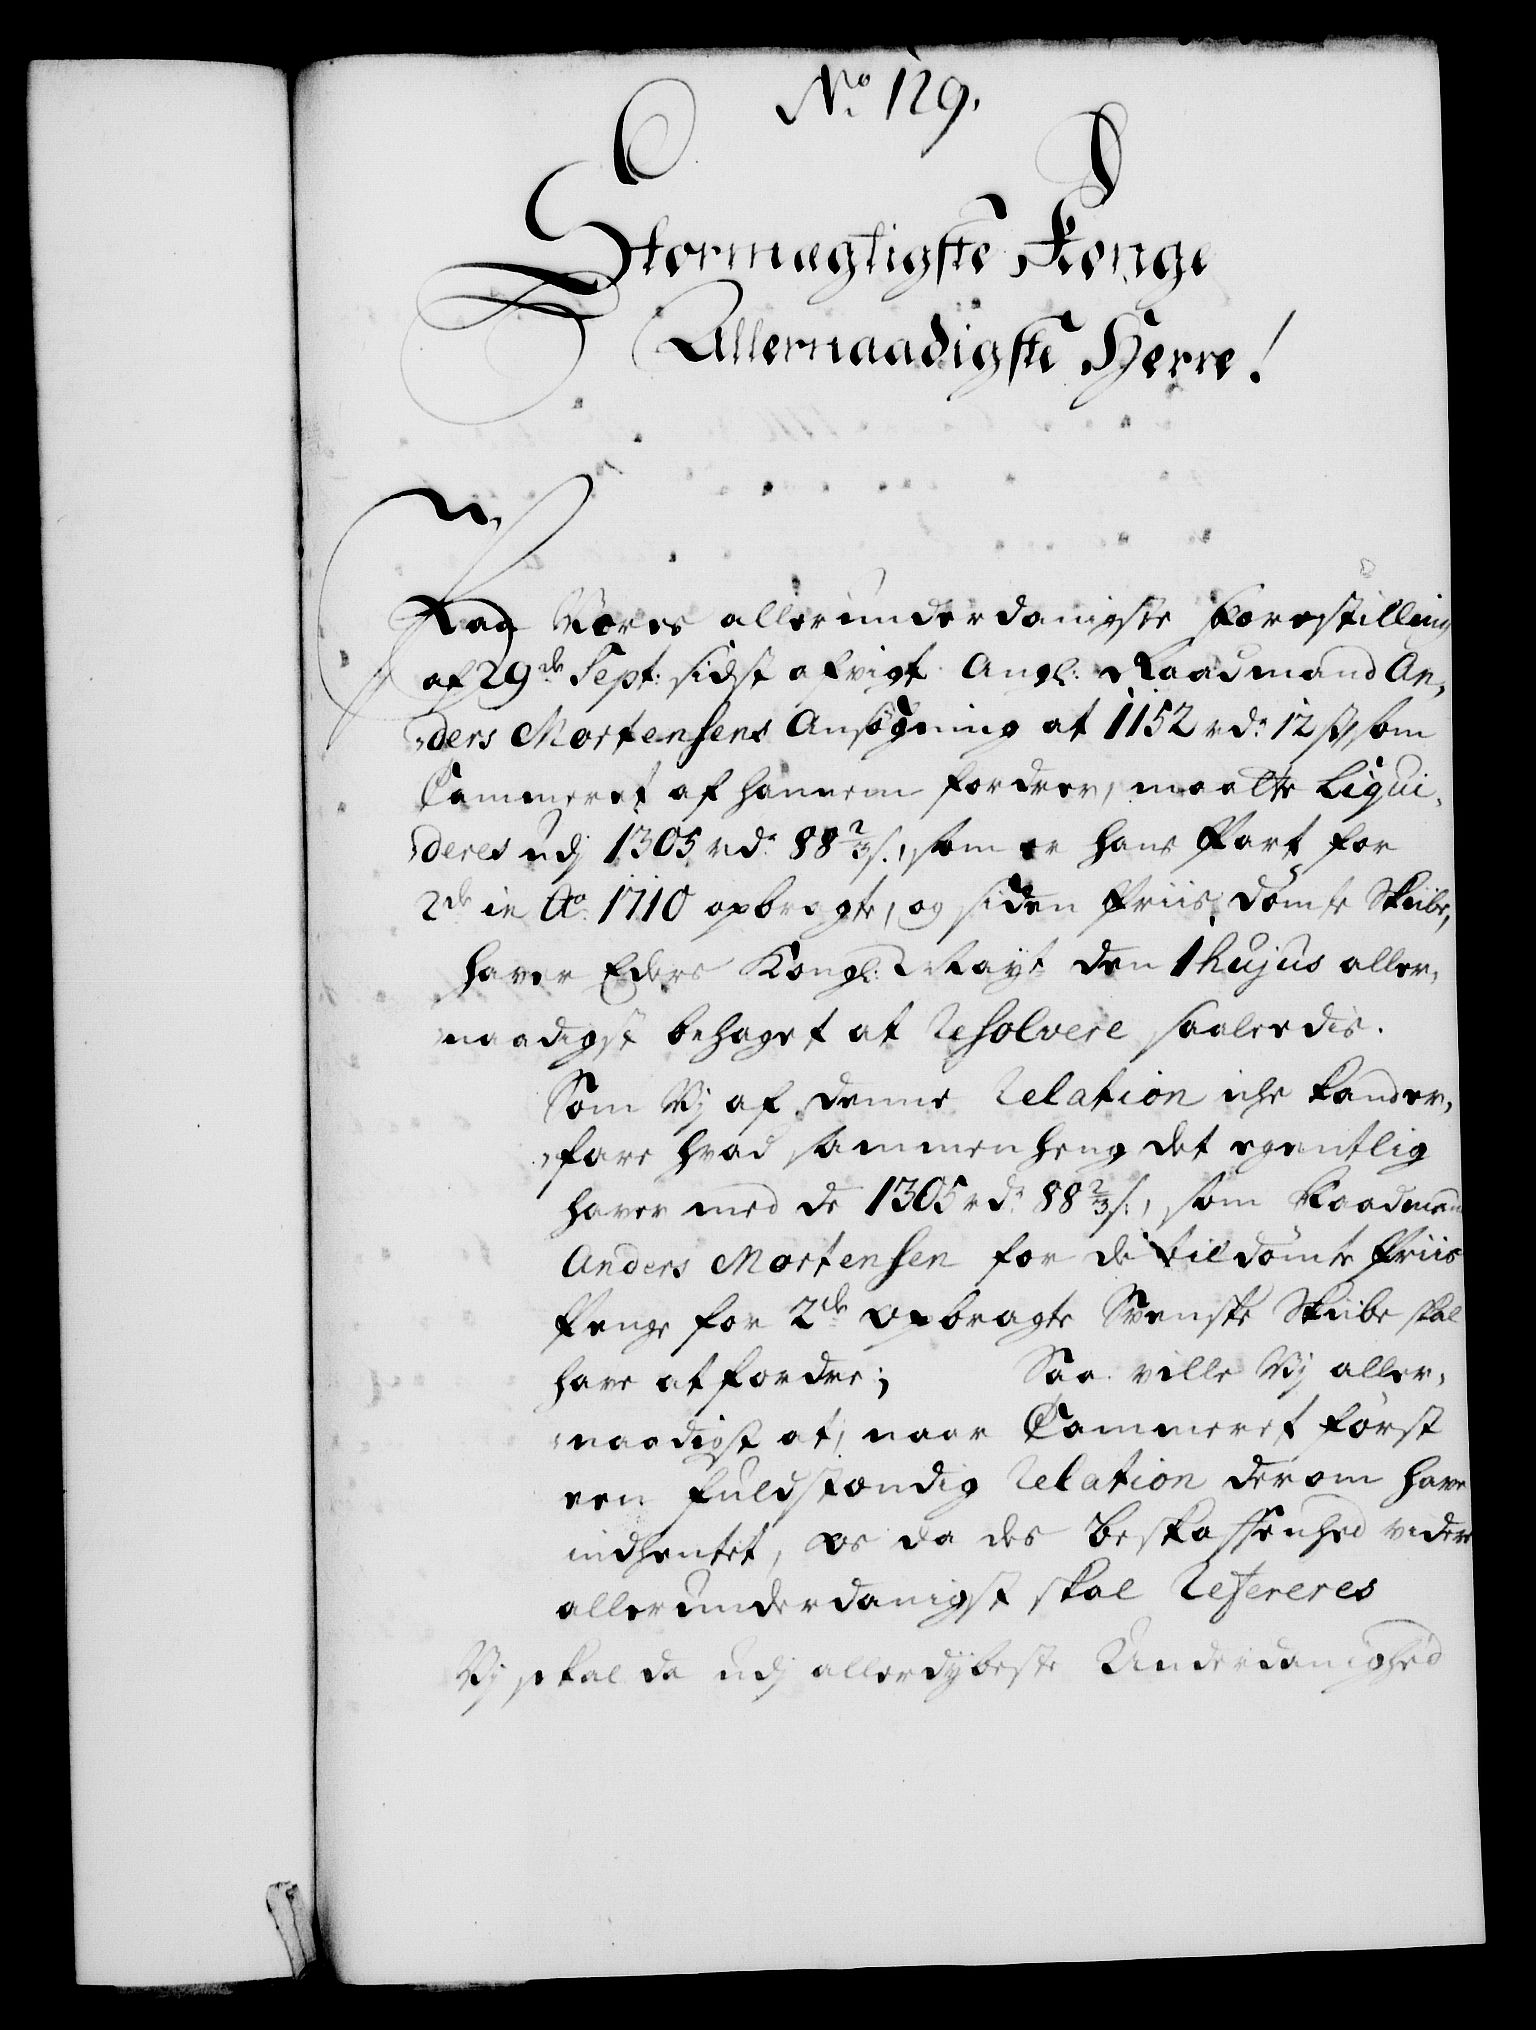 No. 129.
Stormægtigste Konge
Allernaadigste Herre!
Paa Vores allerunderdanigste Forestilling
af 29de Sept: sidst afvigt Angl: Raadmand An,
,ders Mortensens Ansögning at 1152 rd. 12 ß som
Cammeret af hannem fordrer, maatte Liqui,
,deres udj 1305 rd. 88 2/3 s., som er hans Part for
2de in Ao. 1710 opbragte, og siden Priis dömte Skibe,
haver Eders Kongl: Mayt den 1 hujus aller,
naadigst behaget at Resolvere saaledis.
Som Vj af denne Relation iche kand er,
,fare hvad sammenheng det egentlig
haver med de 1305 rd. 88 2/3 s:, som Raadmand
Anders Mortensen for de tildömte Priis
Penge for 2de opbragte Svenske Skibe skal
have at fordre; Saa ville Vj aller,
,naadigst at, naar Cammeret först
een fuldstændig Relation derom have
indhentet, os da des beskaffenhed videre
allerunderdanigst skal Refereres
Vj skal da udj allerdybeste Underdanighed